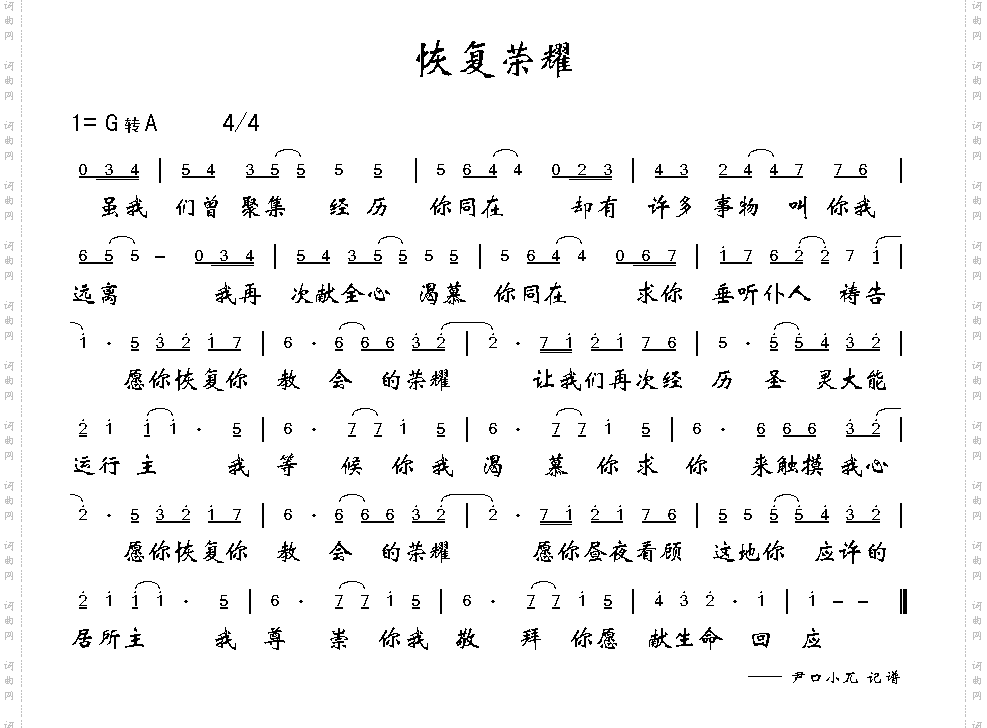 恢复荣耀
1= G 转 A 4/4
0 3 4 | 5 4 3 5 5 5 5 | 5 6 4 4 0 2 3 | 4 3 2 4 4 7 7 6 |
虽我 们曾 聚集 经 历 你同在 却有 许多 事物 叫 你我
6 5 5 – 0 3 4 | 5 4 3 5 5 5 5 | 5 6 4 4 0 6 7 | 1 7 6 2 2 7 1 |
远离 我再 次献全心 渴慕 你同在 求你 垂听仆人 祷告
1 · 5 3 2 1 7 | 6 · 6 6 6 3 2 | 2 · 7 1 2 1 7 6 | 5 · 5 5 4 3 2 |
愿你恢复你 教 会 的荣耀 让我们再次经 历 圣 灵大能
2 1 1 1 · 5 | 6 · 7 7 1 5 | 6 · 7 7 1 5 | 6 · 6 6 6 3 2 |
运行主 我 等 候 你我 渴 慕 你求 你 来触摸 我心
2 · 5 3 2 1 7 | 6 · 6 6 6 3 2 | 2 · 7 1 2 1 7 6 | 5 5 5 5 4 3 2 |
愿你恢复你 教 会 的荣耀 愿你昼夜看顾 这地你 应许的
2 1 1 1 · 5 | 6 · 7 7 1 5 | 6 · 7 7 1 5 | 4 3 2 · 1 | 1 – –
居所主 我 尊 崇 你我 敬 拜 你愿 献生命 回 应
—— 尹口小兀 记谱
词曲网